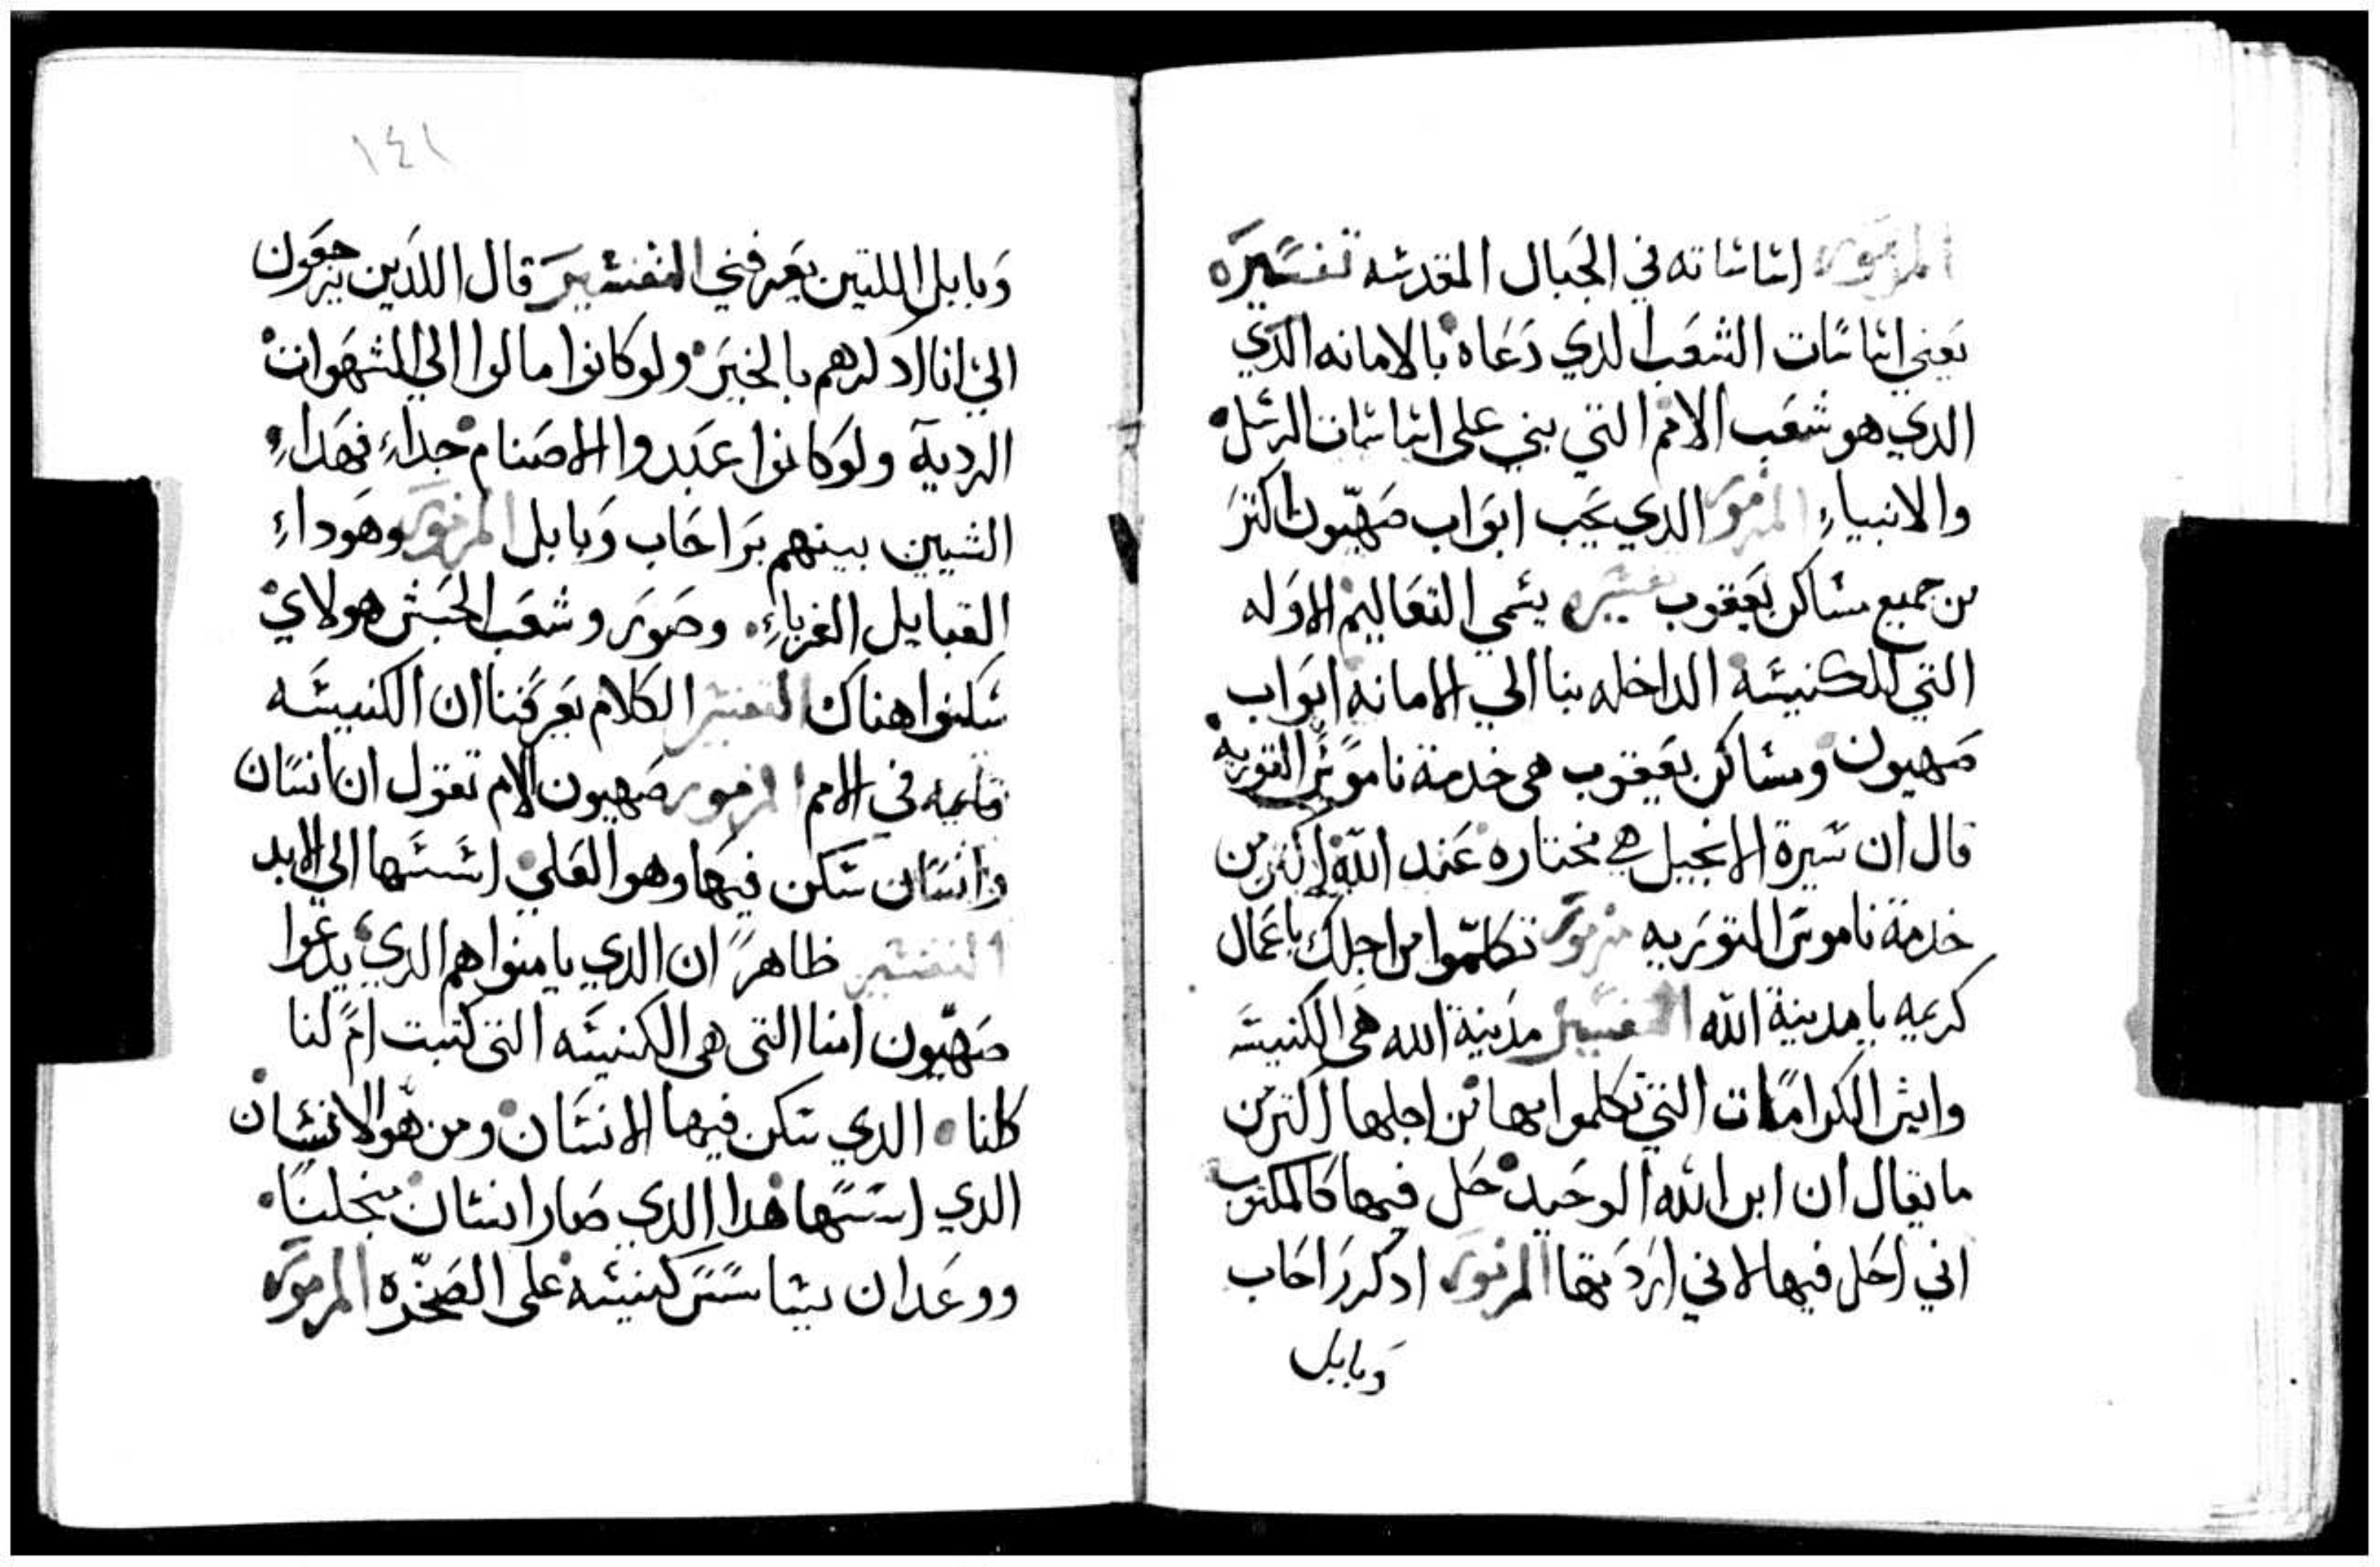 المزمور اساساته في الجبال المقدسه تفسيره
يعني اساسات الشعب الدي دعاه بالامانه الدي
الدي هو شعب الامم التي بني على اساسات الرسل
والانبياء المزمور الدي يحب ابواب صهيون اكتر
من جميع مساكن يعقوب تفسيره يسمي التعاليم الاوله
التي للكنيسه الداخله بنا الي الامانة ابواب
صهيون ومساكن يعقوب هى خدمة ناموس التوريه
قال ان سيرة الانجيل هي مختاره عند الله اكتر من
خدمة ناموس التوريه مزمور تكلموا من اجلك باعمال
كريمه يا مدينة الله التفسير مدينة الله هى الكنيسه
وايش الكرامات التي تكلموا بها من اجلها اكتر من
ما يقال ان ابن الله الوحيد حل فيها كالمكتوب
اني احل فيها لاني اردتها المزمور ادكر راحاب
وبابل
١٤١
وبابل اللتين يعرفني التفسير قال اللدين يرجعون
الي انا ادكرهم بالخير ولو كانوا مالوا الي الشهوات
الرديه ولو كانوا عبدوا الاصنام جداء فهداء
الشيين بينهم براحاب وبابل المزمور وهوداء
القبايل الغرباء وصور وشعب الحبش هولاي
سكنوا هناك التفسير الكلام يعرفنا ان الكنيسه
قايمه في الامم المزمور صهيون الام تقول ان انسان
وانسان سكن فيها وهو العلي اسسها الي الابد
التفسير ظاهر ان الدي يامنوا هم الدي يدعوا
صهيون امنا التى هى الكنيسه التى كتبت ام لنا
كلنا الدي سكن فيها الانسان ومن هو الانسان
الدي اسسها هدا الدي صار انسان منجلنا
ووعد ان يتاسس كنيسه على الصخره المزمور